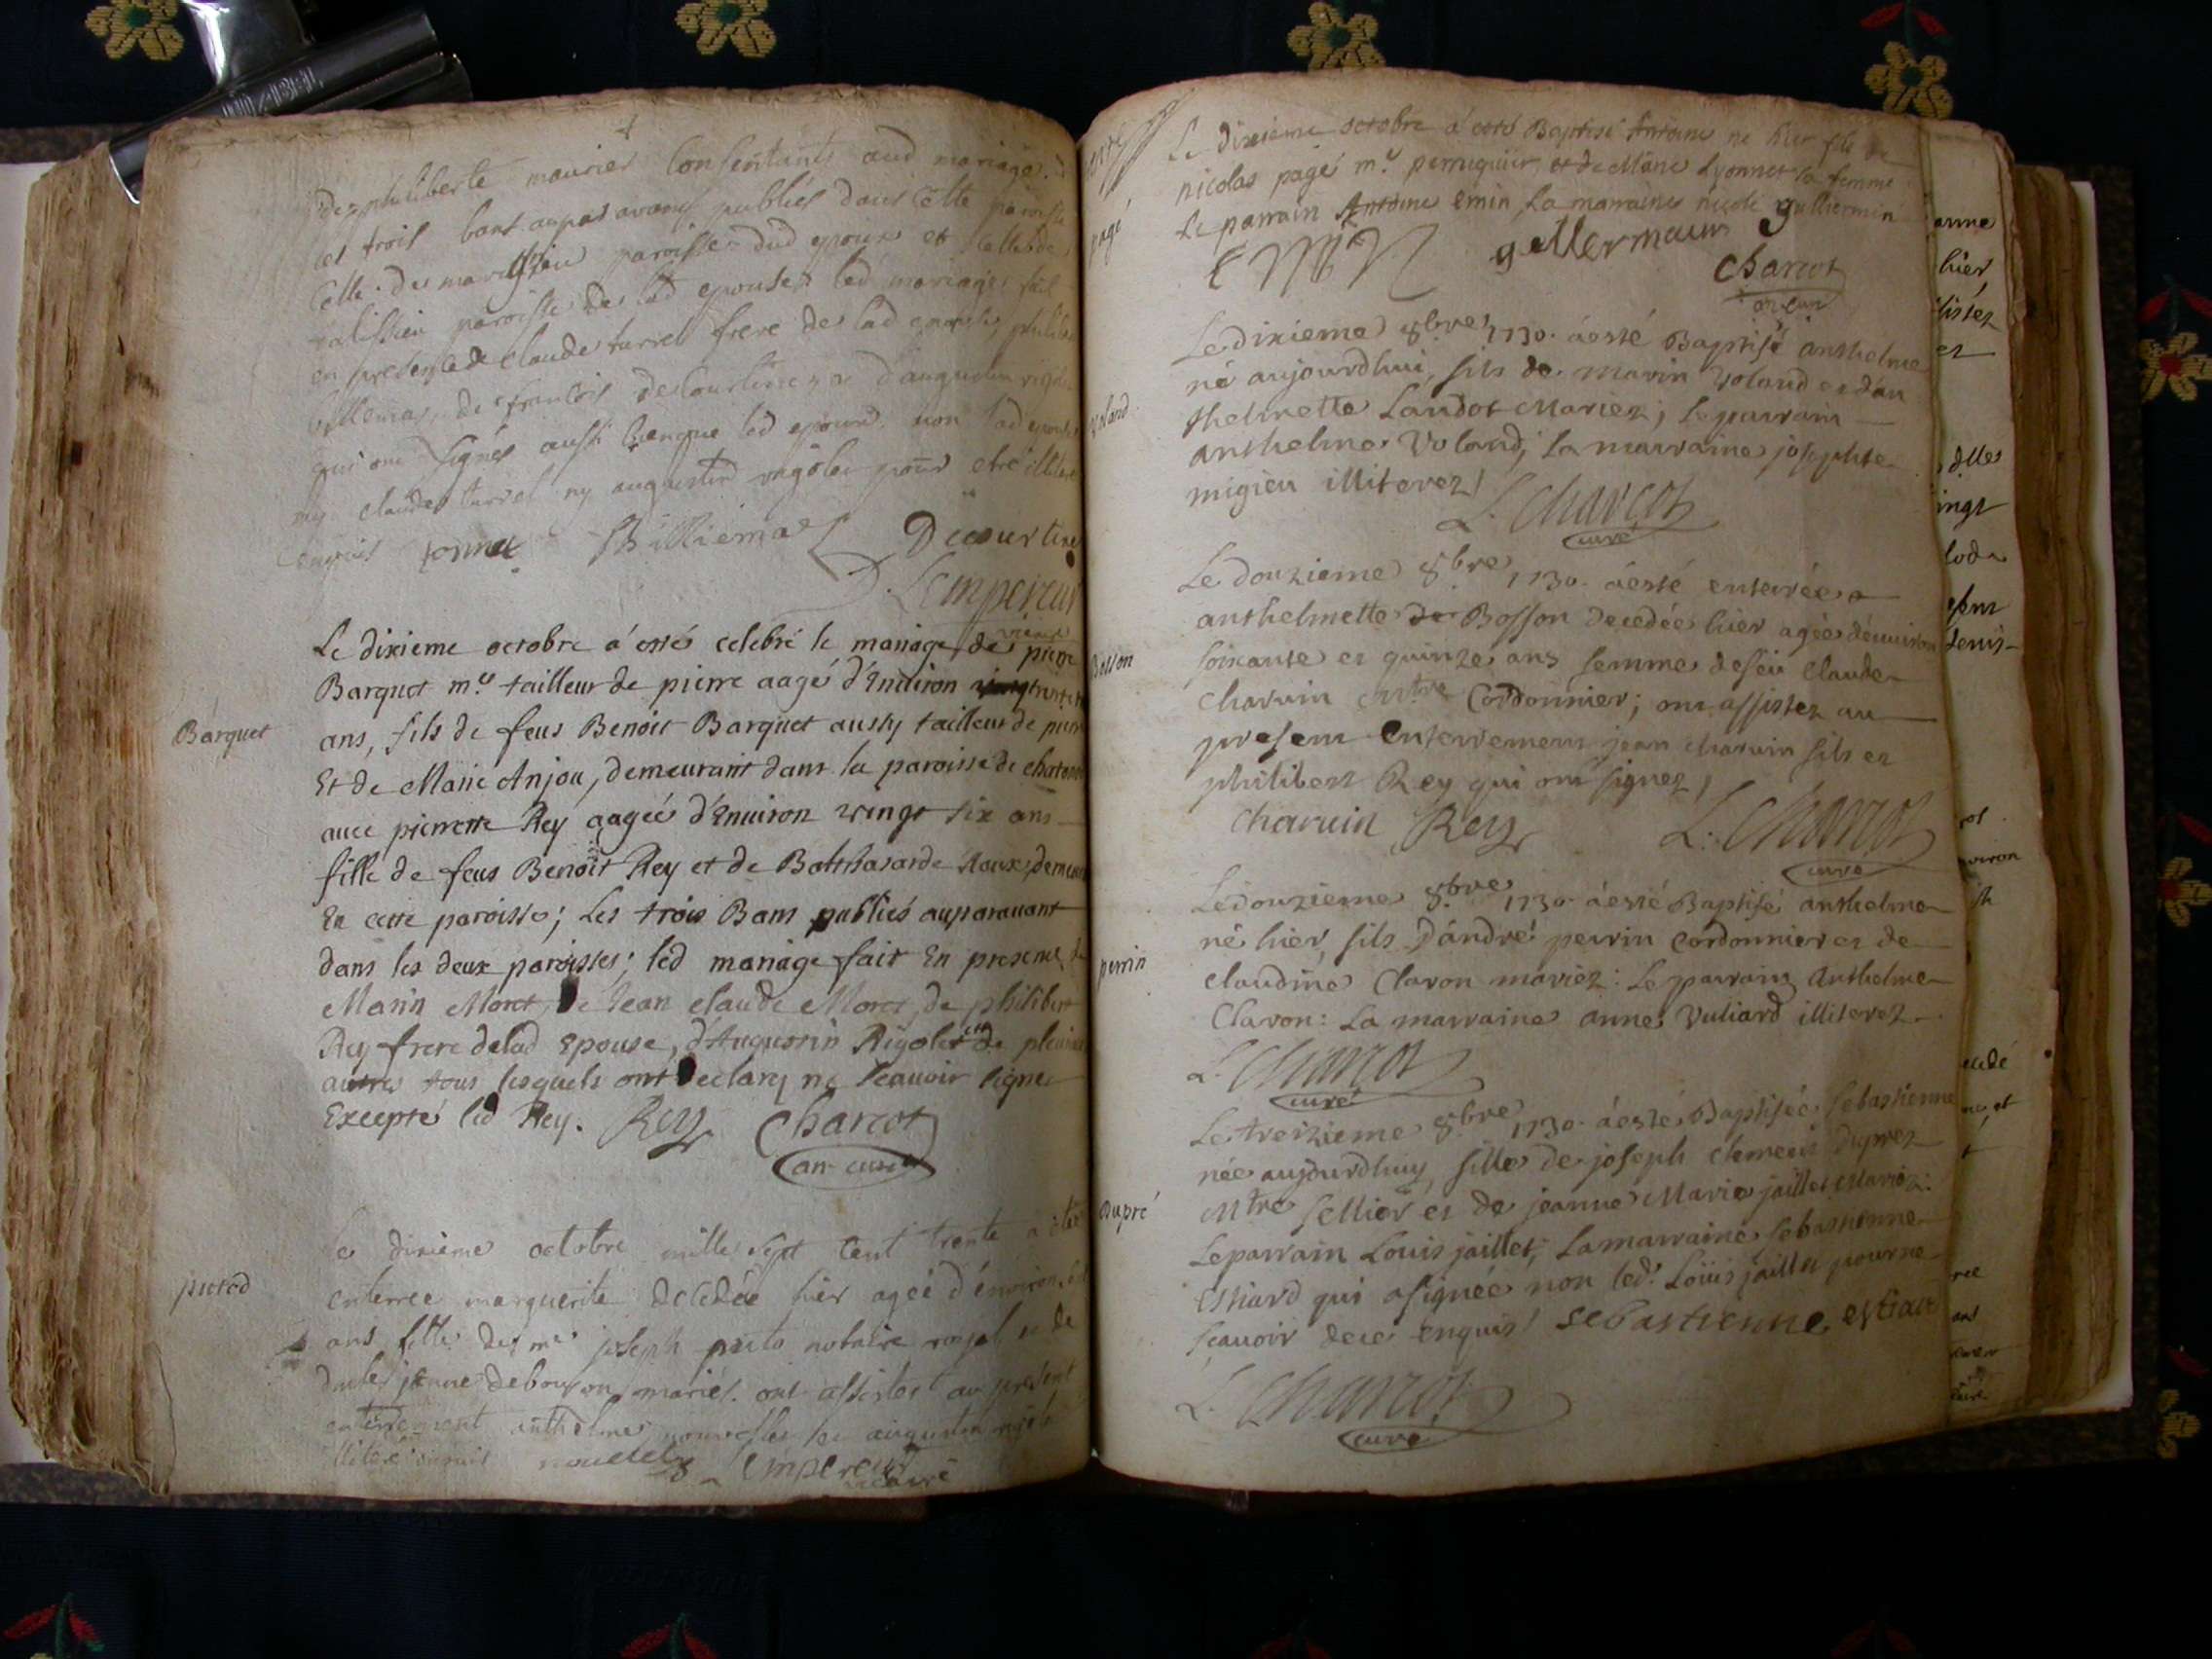 de philiberte maurier consentants aud mariage.
les trois bans auparavant publiés dans cette paroisse
celle de paroisse dud epoux et celle de
paroisse de lad epouse, led mariage fait
en presence de claude turrel frere de lad epouse, philibert
billiemas, de francois decourtines et d'augustin rigolet
qui ont signés aussi bienque led epoux non lad epouse
ny claude turrel ny augustin rigolet pour etre illiteré
enquis Billiemas Decourtine
Lempereur
Le dixieme octobre a esté celebré le mariage de pierre
Barquet m.e tailleur de pierre aagé d'Environ
Barquet
ans, fils de feus Benoit Barquet aussy tailleur de pierre
Et de Marie Anjou, demeurant dans la paroisse de
avec pierrette Rey aagée d'Environ vingt six ans
fille de feus Benoit Rey et de Balthasarde Roux, demeurant
En cette paroisse; Les trois Bans publiés auparavant
dans les deux paroisses; led mariage fait En presence de
Marin Moret, de Jean claude Moret, de philibert
Rey frere de lad Epouse, d'Augustin Rigolet et de plusieurs
autres tous lesquels ont declaré ne scauoir signer
Excepté led Rey. Rey Charcot
an. curé
Le dixieme octobre mille sept cent trente a été
enterree marguerite decedée hier agée d'environ
ans fille de me joseph notaire royal et de
jeanne debosson mariés. ont assistes au present
enterrement anthelme et augustin rigolet
illiteré enquis Lempereur
vicaire
pagé
Le dixieme octobre a esté Baptisé Antoine né hier fils de
nicolas pagé m.e perruquier, et de Marie Lyonnet sa femme
Le parrain Antoine émin, La marraine nicole gulliermin
EMIN gullermain
Charcot
an. curé
Le dixieme 8bre 1730. a esté Baptisé anthelme
voland
né aujourdhui, fils de marin voland et d'an
thelmette Landot Mariez; Le parrain
anthelme Voland; La marraine josephte
migieu illiterez/
L. Charcot
curé
Le douzieme 8bre 1730. a esté enterrée
anthelmette de Bosson decedée hier agée d'environ
bosson
soixante et quinze ans femme de feu Claude
Charvin Mtre Cordonnier; ont assistez au
present Enterrement jean charvin fils et
philibert Rey qui ont signez/
charvin Rey L. Charcot
curé
Le douzieme 8bre 1730. a esté Baptisé anthelme
né hier, fils D'andré perrin Cordonnier et de
perrin
claudine Clavon mariez: Le parrain Anthelme
Clavon: La marraine anne Vuliard illiterez
L. Charcot
curé
Le treizieme 8bre 1730. a esté Baptisée sebastienne
née aujourdhuy, fille de joseph clement duprez
dupré
Mtre sellier et de jeanne Marie jaillet Mariez:
Le parrain Louis jaillet; La marraine sebastienne
qui a signée non led. Loüis jaillet pour ne
sçavoir de ce enquis/ sebastienne
L. Charcot
curé